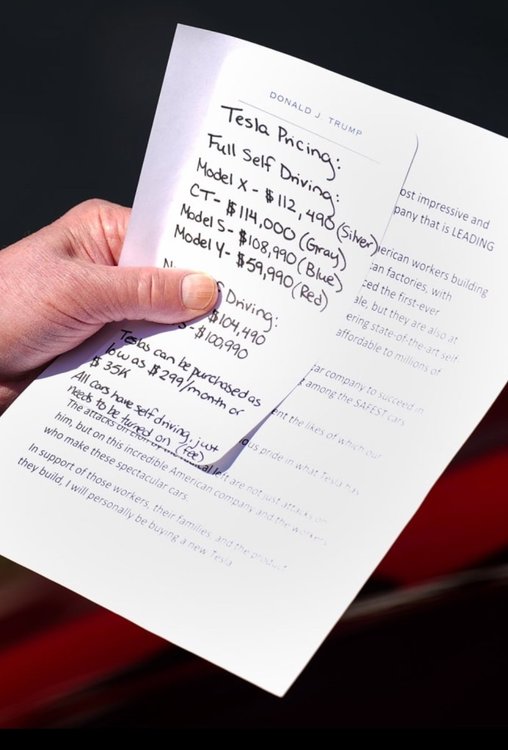 DONALD J. TRUMP
Tesla Pricing:
Full Self Driving:
Model X - $112,490 (Silver)
CT - $114,000 (Gray)
Model S - $108,990 (Blue)
Model Y - $59,990 (Red)
Driving:
$104,490
S - $100,990
Teslas can be purchased as
low as $299/month or
$35K
All cars have self driving, just
needs to be turned on (fee)
ost impressive and
pany that is LEADING
erican workers building
can factories, with
ced the first-ever
ale, but they are also at
ering state-of-the-art self-
affordable to millions of
car company to succeed in
among the SAFEST cars
ent the likes of which our
ous pride in what Tesla has
The attacks on left are not just attacks on
him, but on this incredible American company and the workers
who make these spectacular cars.
In support of those workers, their families, and the product
they build, I will personally be buying a new Tesla